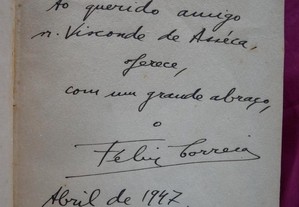 Ao querido amigo
n. Visconde de Asséca,
oferece,
com um grande abraço,
o
Feliz Correia
Abril de 1947.